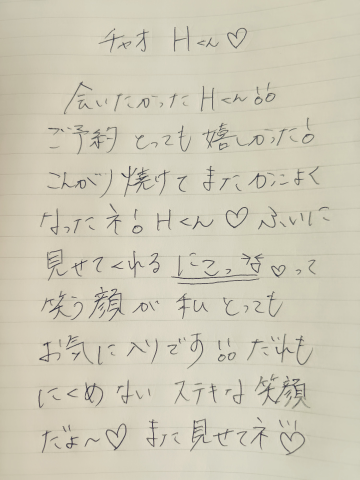 チャオ Hくん♡
会いたかったHくん!!
ご予約 とっても 嬉しかった!
こんがり焼けて またかっこよく
なったネ! Hくん♡ ふいに
見せてくれる にこっな♡って
笑う顔が 私 とっても
お気に入りです!! だれも
にくめない ステキな 笑顔
だよ〜♡ また 見せてネ♡